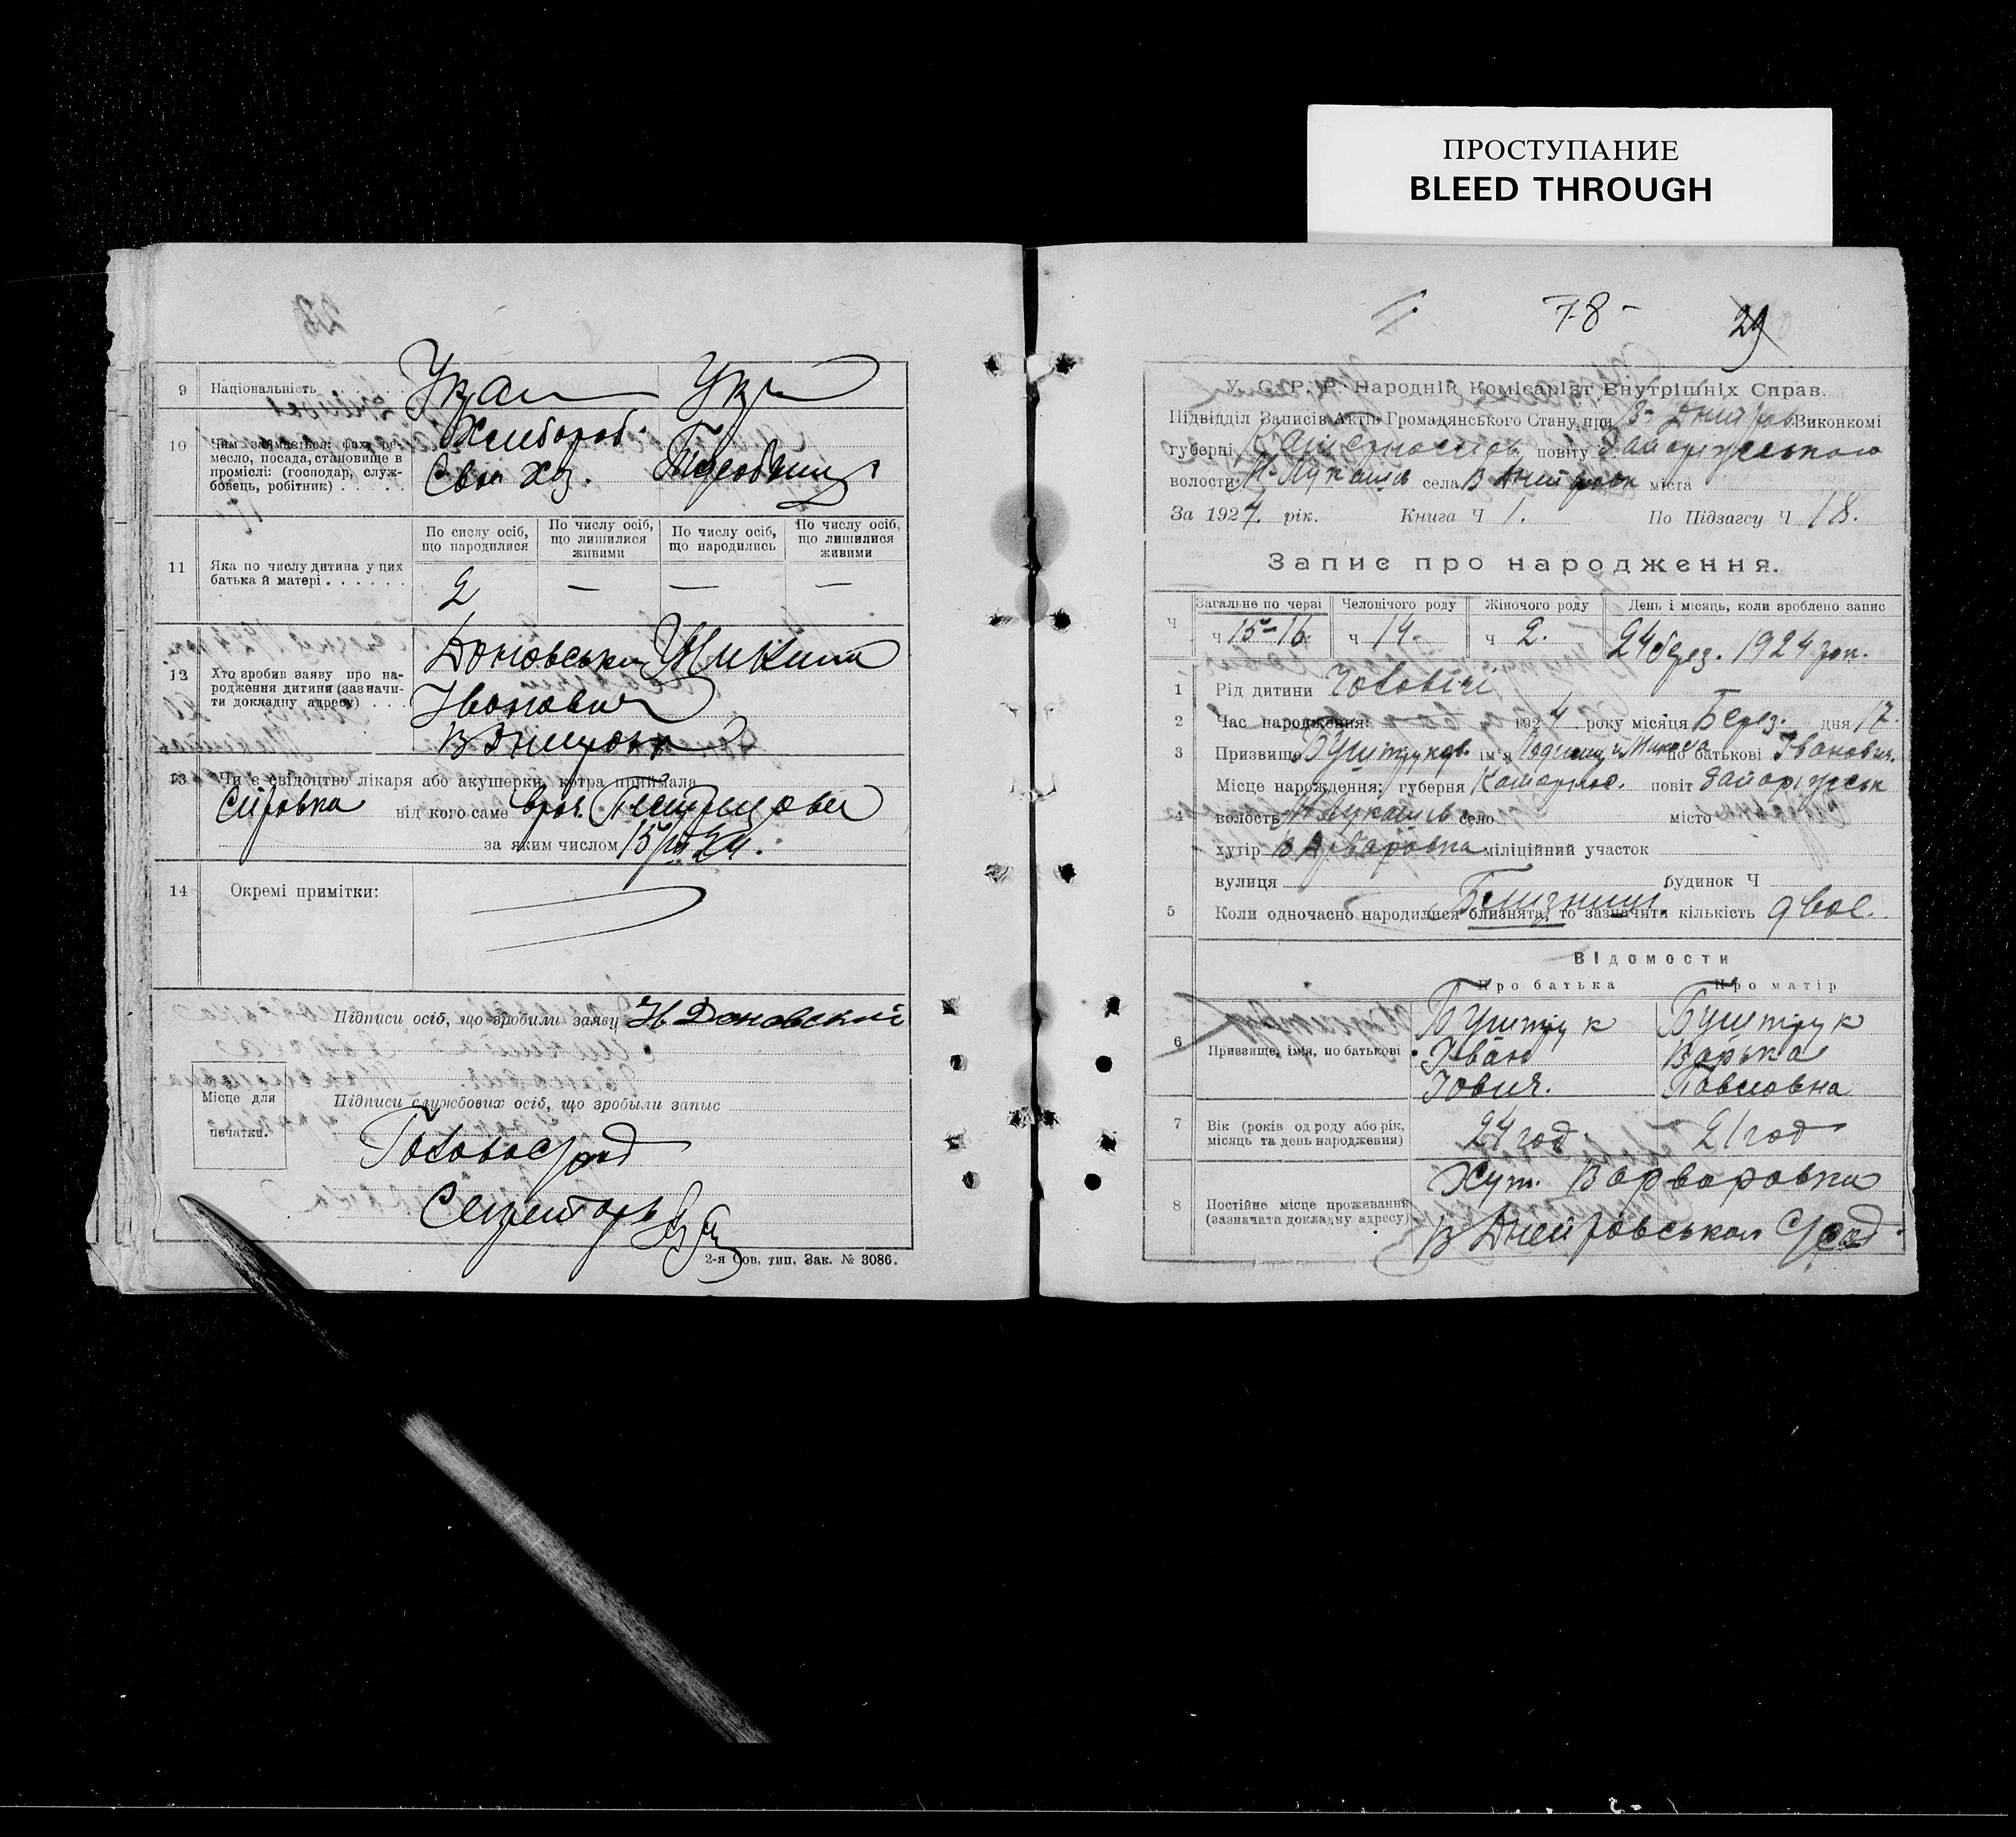 ПРОСТУПАНИЕ
BLEED THROUGH
9 Національність Укра Укр
10 Чим займається: фах, ре-
месло, посада, становище в
промислі: (господар, служ-
бовець, робітник)
Хлібороб.
Свое хоз.
11 Яка по числу дитина у цих
батька й матері
По сислу осіб,
що народилися
По числу осіб,
що лишилися
живими
По числу осіб,
що народились
По числу осіб,
що лишилися
живими
2 — — —
12 Хто зробив заяву про на-
родження дитини (зазначи-
ти докладну адресу)
Доновський Микита
Іванович
13 Чи є свідоцтво лікаря або акушерки, котра приймала
від кого саме
за яким числом 15/III 24.
14 Окремі примітки:
Підписи осіб, що зробили заяву Н. Доновский
Місце для
печатки.
Підписи службових осіб, що зробыли запыс
Голова с/рад
Секретарь
2-я Сов. тип. Зак. № 3086.
78 -
29
У. С. Р. Р. Народній Комісаріят Внутрішніх Справ.
Підвідділ Записів Актів Громадянського Стану при В-Днипров Виконкомі
губерні повіту Запоріжського
волости села міста
За 1924. рік. Книга Ч 1. По Підзагсу Ч 18.
Запис про народження.
Ч
Загальне по черзі
Человічого роду
Жіночого роду
День і місяць, коли вроблено запис
ч 15-16. ч 14. ч 2. 24 берез. 1924 рок.
1 Рід дитини Чоловічі
2 Час народження: 1924 року місяця Берез. дня 17.
3 Призвище ім'я по батькові Іванович.
4 Місце народження: губерня повіт Запоріжськ
волость село місто
хутір Варваровка міліційний участок
вулиця будинок Ч
5 Коли одночасно народилися близнята, то зазначити кількість двое.
Близниці
Відомости
Про батька Про матір
6 Призвище, імя, по батькові
Буштрук Буштрук
Іван Варька
Іович. Павловна
7 Вік (років од роду або рік,
місяць та день народження)
24 год 21 год
8 Постійне місце проживання
(зазначати докладну адресу)
Хут. Варваровка
В Днепровськая С/рад.